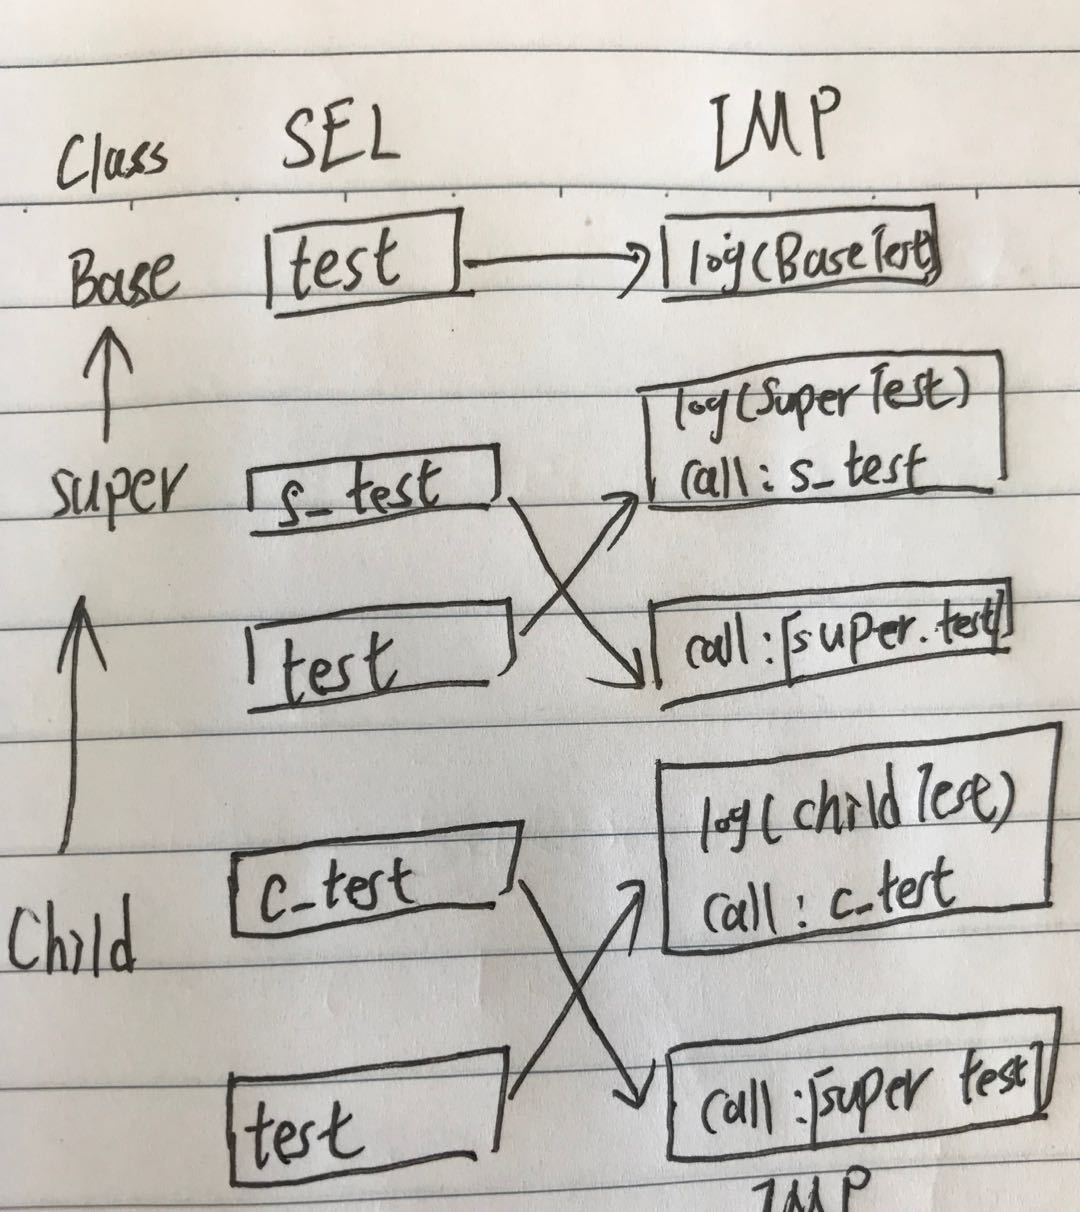 Class SEL IMP
Base test log(BaseTest)
super s_test log(SuperTest)
call: s_test
test call:[super.test]
Child c_test log(childTest)
call: c_test
test call:[super test]
IMP